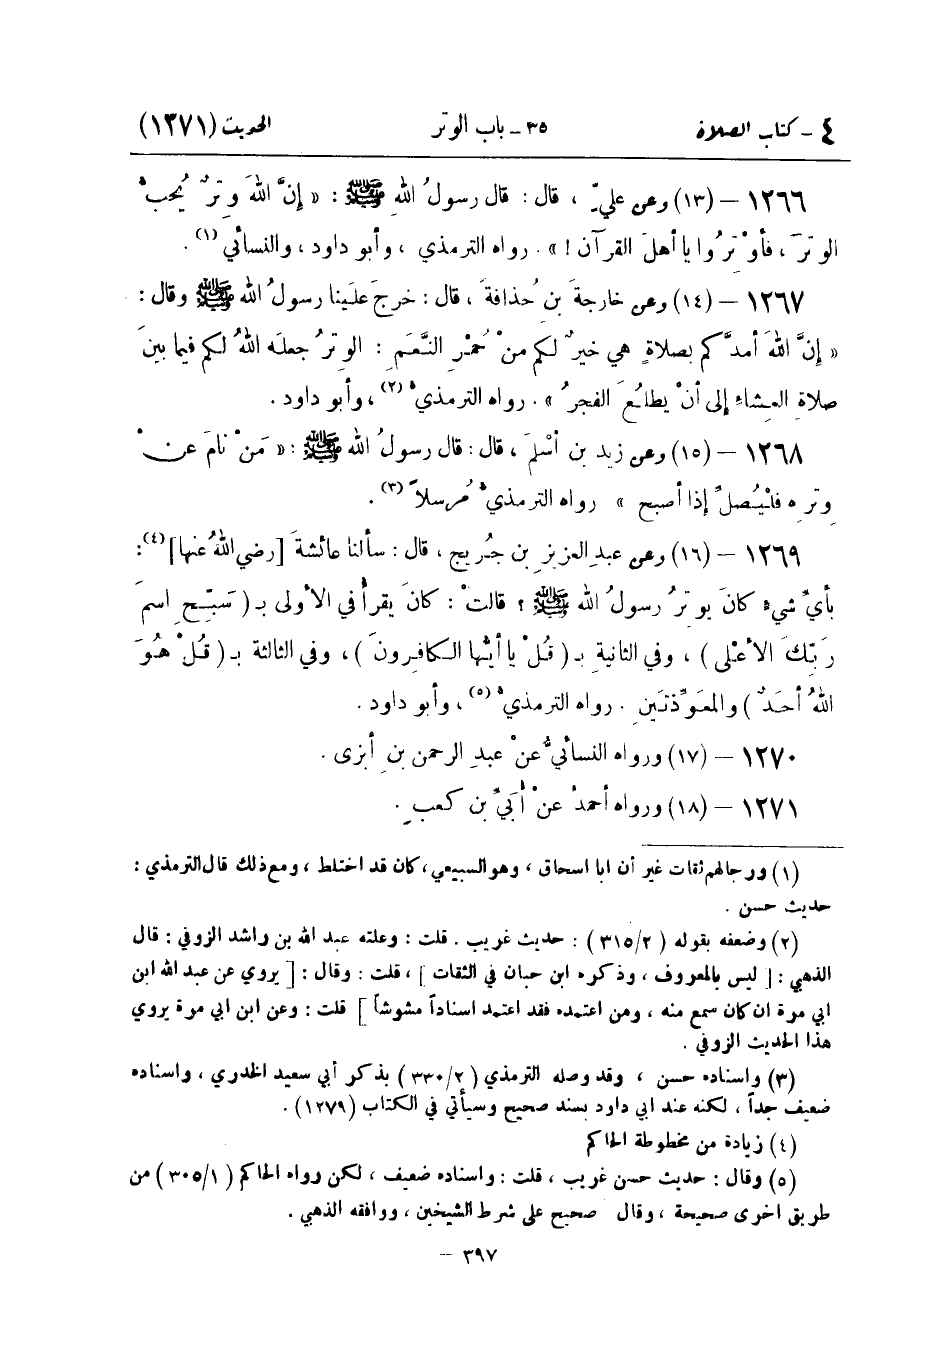 ٤ - كتاب الصلاة ٣٥ - باب الوتر الحديث (١٢٧١)
١٢٦٦ - (١٣) وعن عليّ ، قال : قال رسولُ اللهِ ﷺ : « إنَّ اللهَ وِترٌ يُحبُّ
الوِترَ ، فأوْتِرُوا يا أهلَ القرآن ! » . رواه الترمذي ، وأبو داود ، والنسائي (١) .
١٢٦٧ - (١٤) وعن خارجةَ بنِ حُذافةَ ، قال : خرجَ علَينا رسولُ الله ﷺ وقال :
« إنَّ اللهَ أمدَّكم بصلاةٍ هي خيرٌ لكم منْ حُمْرِ النَّعَمِ : الوِترُ جعلَه اللهُ لكم فيما بينَ
صلاةِ العِشاءِ إلى أنْ يطلُعَ الفجرُ » . رواه الترمذيُّ (٢) ، وأبو داود .
١٢٦٨ - (١٥) وعن زيد بن أسْلمَ ، قال : قال رسولُ الله ﷺ : « مَنْ نامَ عنْ
وِترِه فلْيُصلِّ إذا أصبح » رواه الترمذيُّ مُرسلاً (٣) .
١٢٦٩ - (١٦) وعن عبدِ العزيزِ بن جُريجٍ ، قال : سألنا عائشةَ [رضي اللهُ عنها] (٤) :
بأيِّ شيءٍ كانَ يوتِرُ رسولُ الله ﷺ ؟ قالتْ : كانَ يقرأُ في الأولى بـ ( سَبِّحِ اسمَ
رَبِّكَ الأعْلى ) ، وفي الثانيةِ بـ ( قُلْ يا أيُّها الكافِرونَ ) ، وفي الثالثة بـ ( قُلْ هُوَ
اللهُ أحَدٌ ) والمعَوِّذتَينِ . رواه الترمذيُّ (٥) ، وأبو داود .
١٢٧٠ - (١٧) ورواه النسائيُّ عنْ عبدِ الرحمن بنِ أبزى .
١٢٧١ - (١٨) ورواه أحمدُ عنْ أُبَيِّ بن كعبٍ .
(١) ورجالهم ثقات غير أن ابا اسحاق ، وهو السبيعي ، كان قد اختلط ، ومع ذلك قال الترمذي :
حديث حسن .
(٢) وضعفه بقوله ( ٣١٥/٢ ) : حديث غريب . قلت : وعلته عبد الله بن راشد الزوفي : قال
الذهبي : [ ليس بالمعروف ، وذكره ابن حبان في الثقات ] ، قلت : وقال : [ يروي عن عبد الله ابن
ابي مرة ان كان سمع منه ، ومن اعتمده فقد اعتمد اسناداً مشوشاً ] قلت : وعن ابن ابي مرة يروي
هذا الحديث الزوفي .
(٣) واسناده حسن ، وقد وصله الترمذي ( ٣٣٠/٢ ) بذكر أبي سعيد الخدري ، واسناده
ضعيف جداً ، لكنه عند ابي داود بسند صحيح وسيأتي في الكتاب (١٢٧٩) .
(٤) زيادة من مخطوطة الحاكم
(٥) وقال : حديث حسن غريب ، قلت : واسناده ضعيف ، لكن رواه الحاكم ( ٣٠٥/١ ) من
طريق اخرى صحيحة ، وقال صحيح على شرط الشيخين ، ووافقه الذهبي .
٣٩٧ -